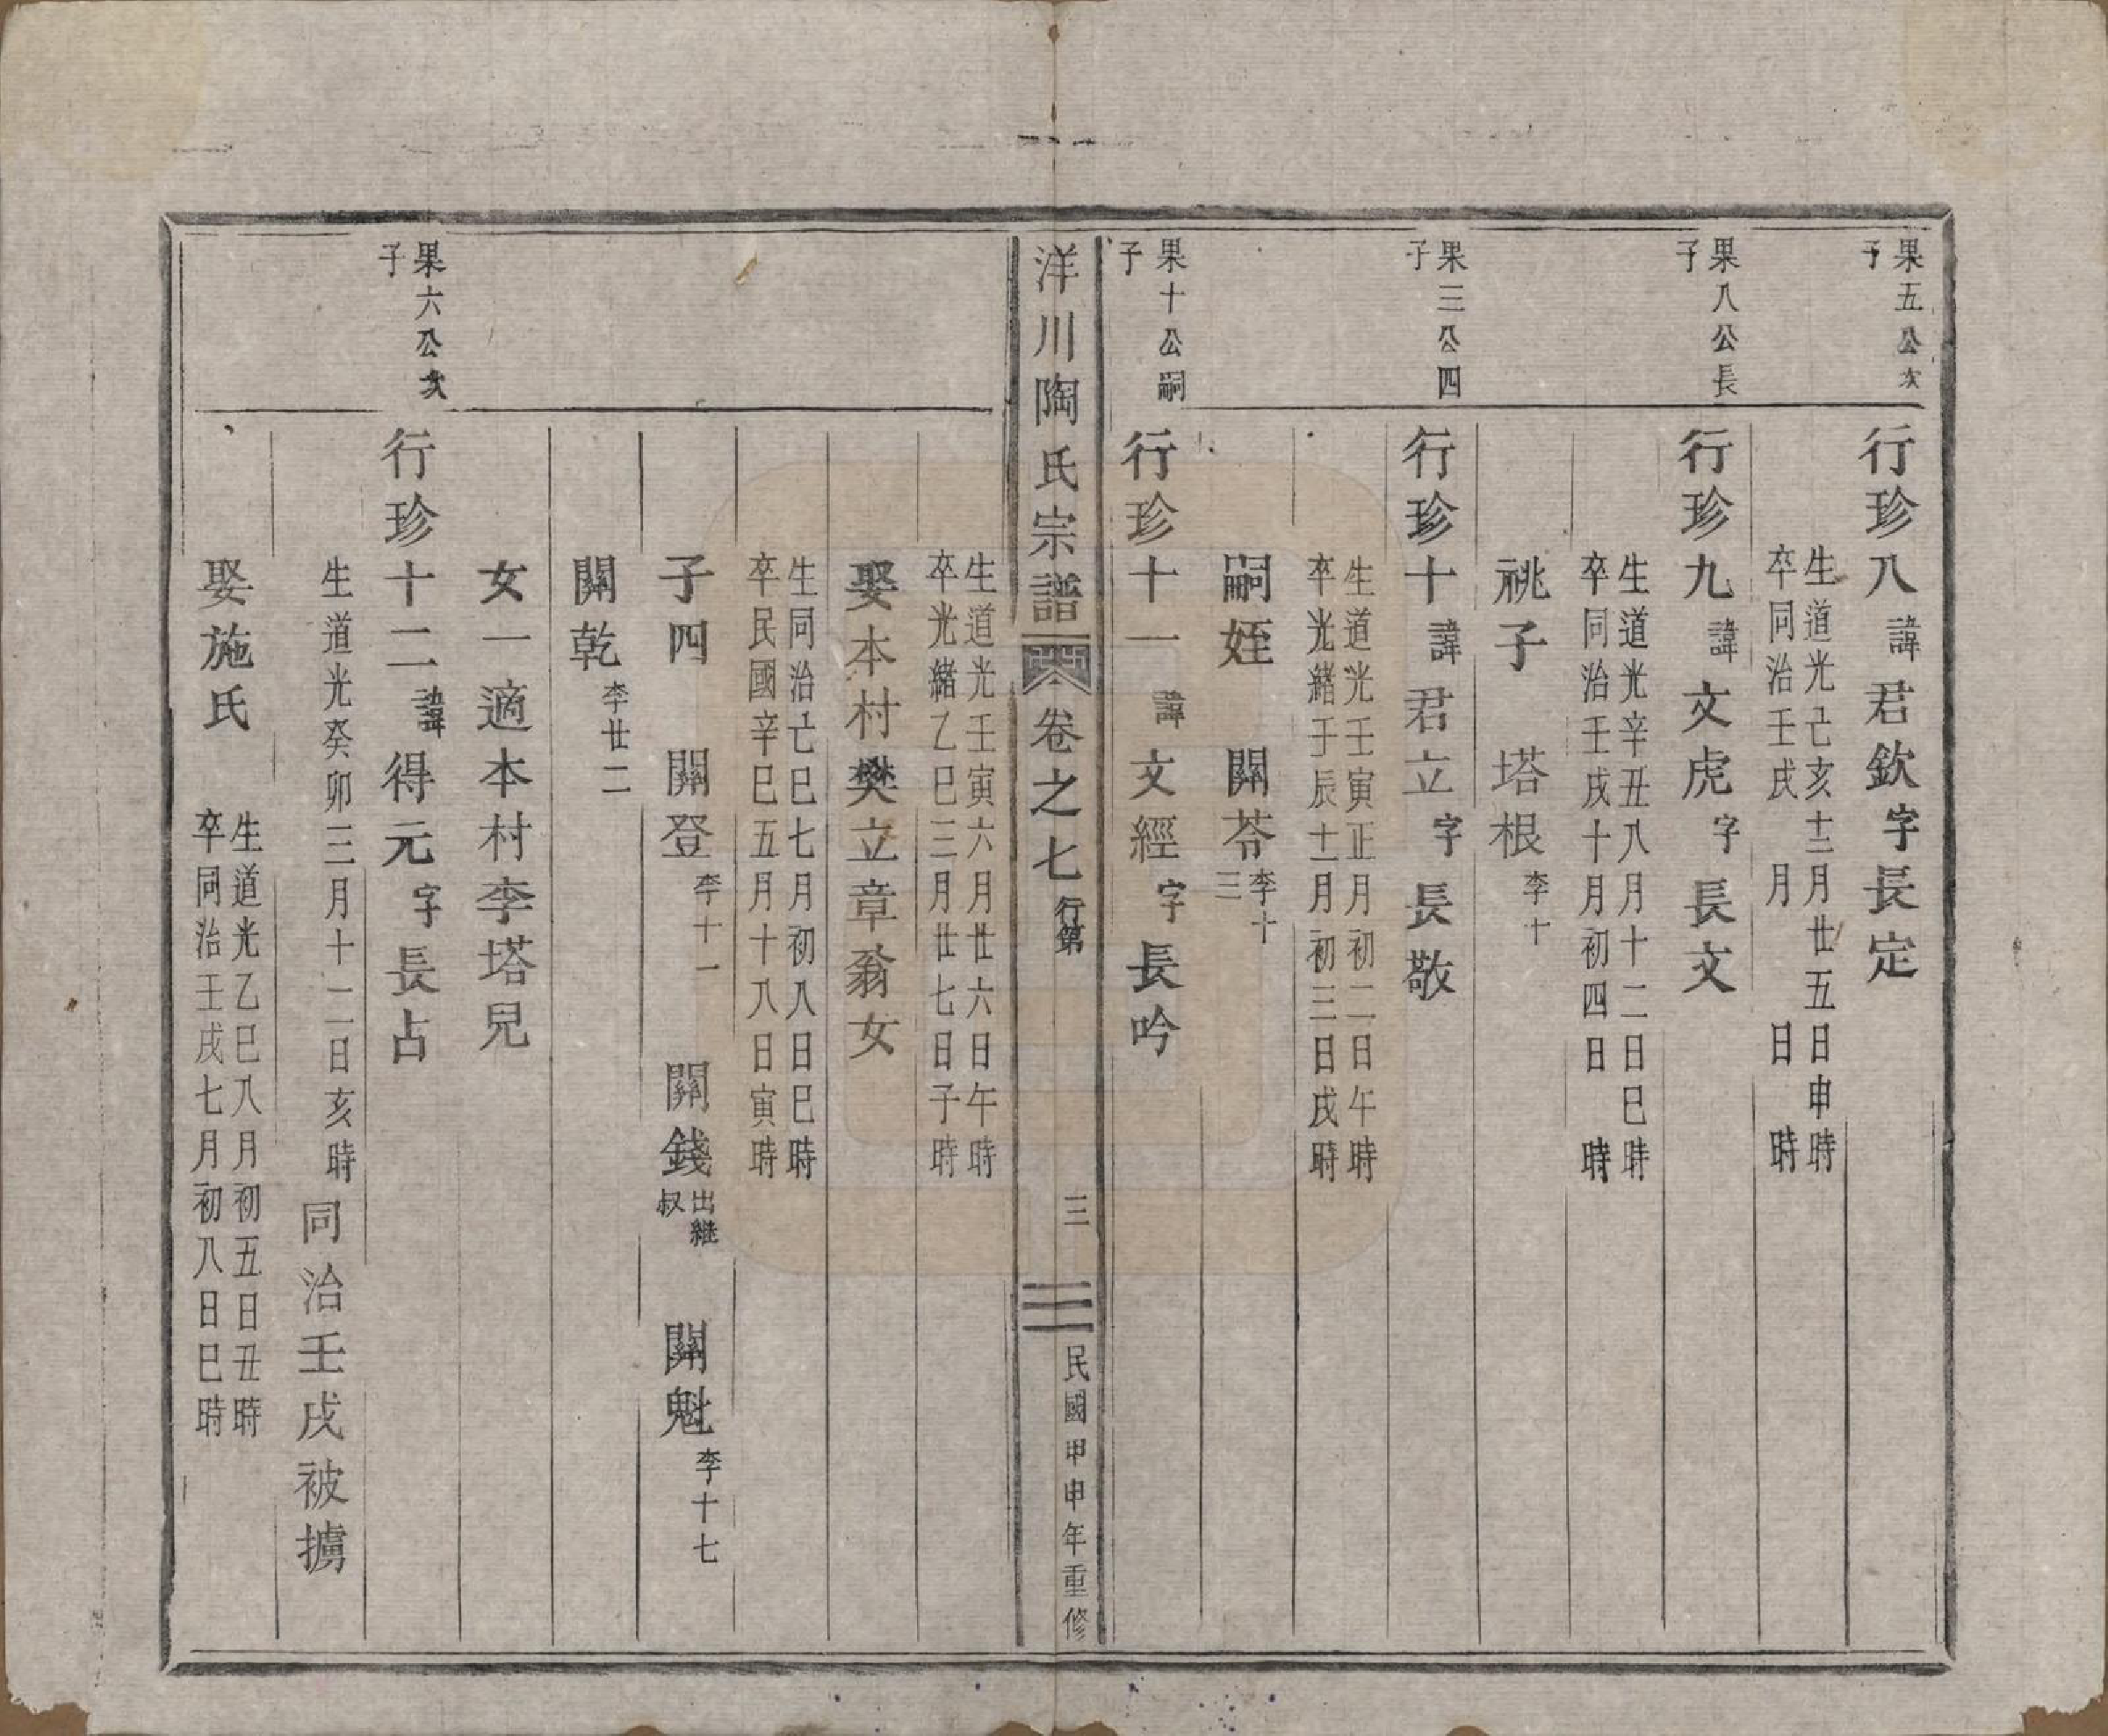 果五公次
子
行珍八諱君欽字長定
生道光己亥十二月廿五日申時
卒同治壬戌 月 日 時
果八公長
子
行珍九諱文虎字長文
生道光辛丑八月十二日巳時
卒同治壬戌十月初四日 時
祧子 塔根李十
果三公四
子
行珍十諱君立字長敬
生道光壬寅正月初二日午時
卒光緒壬辰十二月初三日戌時
嗣姪 關苓李十三
果十公嗣
子
行珍十一諱文經字長吟
洋川陶氏宗譜 卷之七 行第 三 民國甲申年重修
生道光壬寅六月廿六日午時
卒光緒乙巳三月廿七日子時
娶本村樊立章翁女
生同治己巳七月初八日巳時
卒民國辛巳五月十八日寅時
子四 關登李十一 關錢出繼叔 關魁李十七
關乾李廿二
女一適本村李塔兒
果六公次
子
行珍十二諱得元字長占
生道光癸卯三月十二日亥時同治壬戌被擄
娶施氏
生道光乙巳八月初五日丑時
卒同治壬戌七月初八日巳時